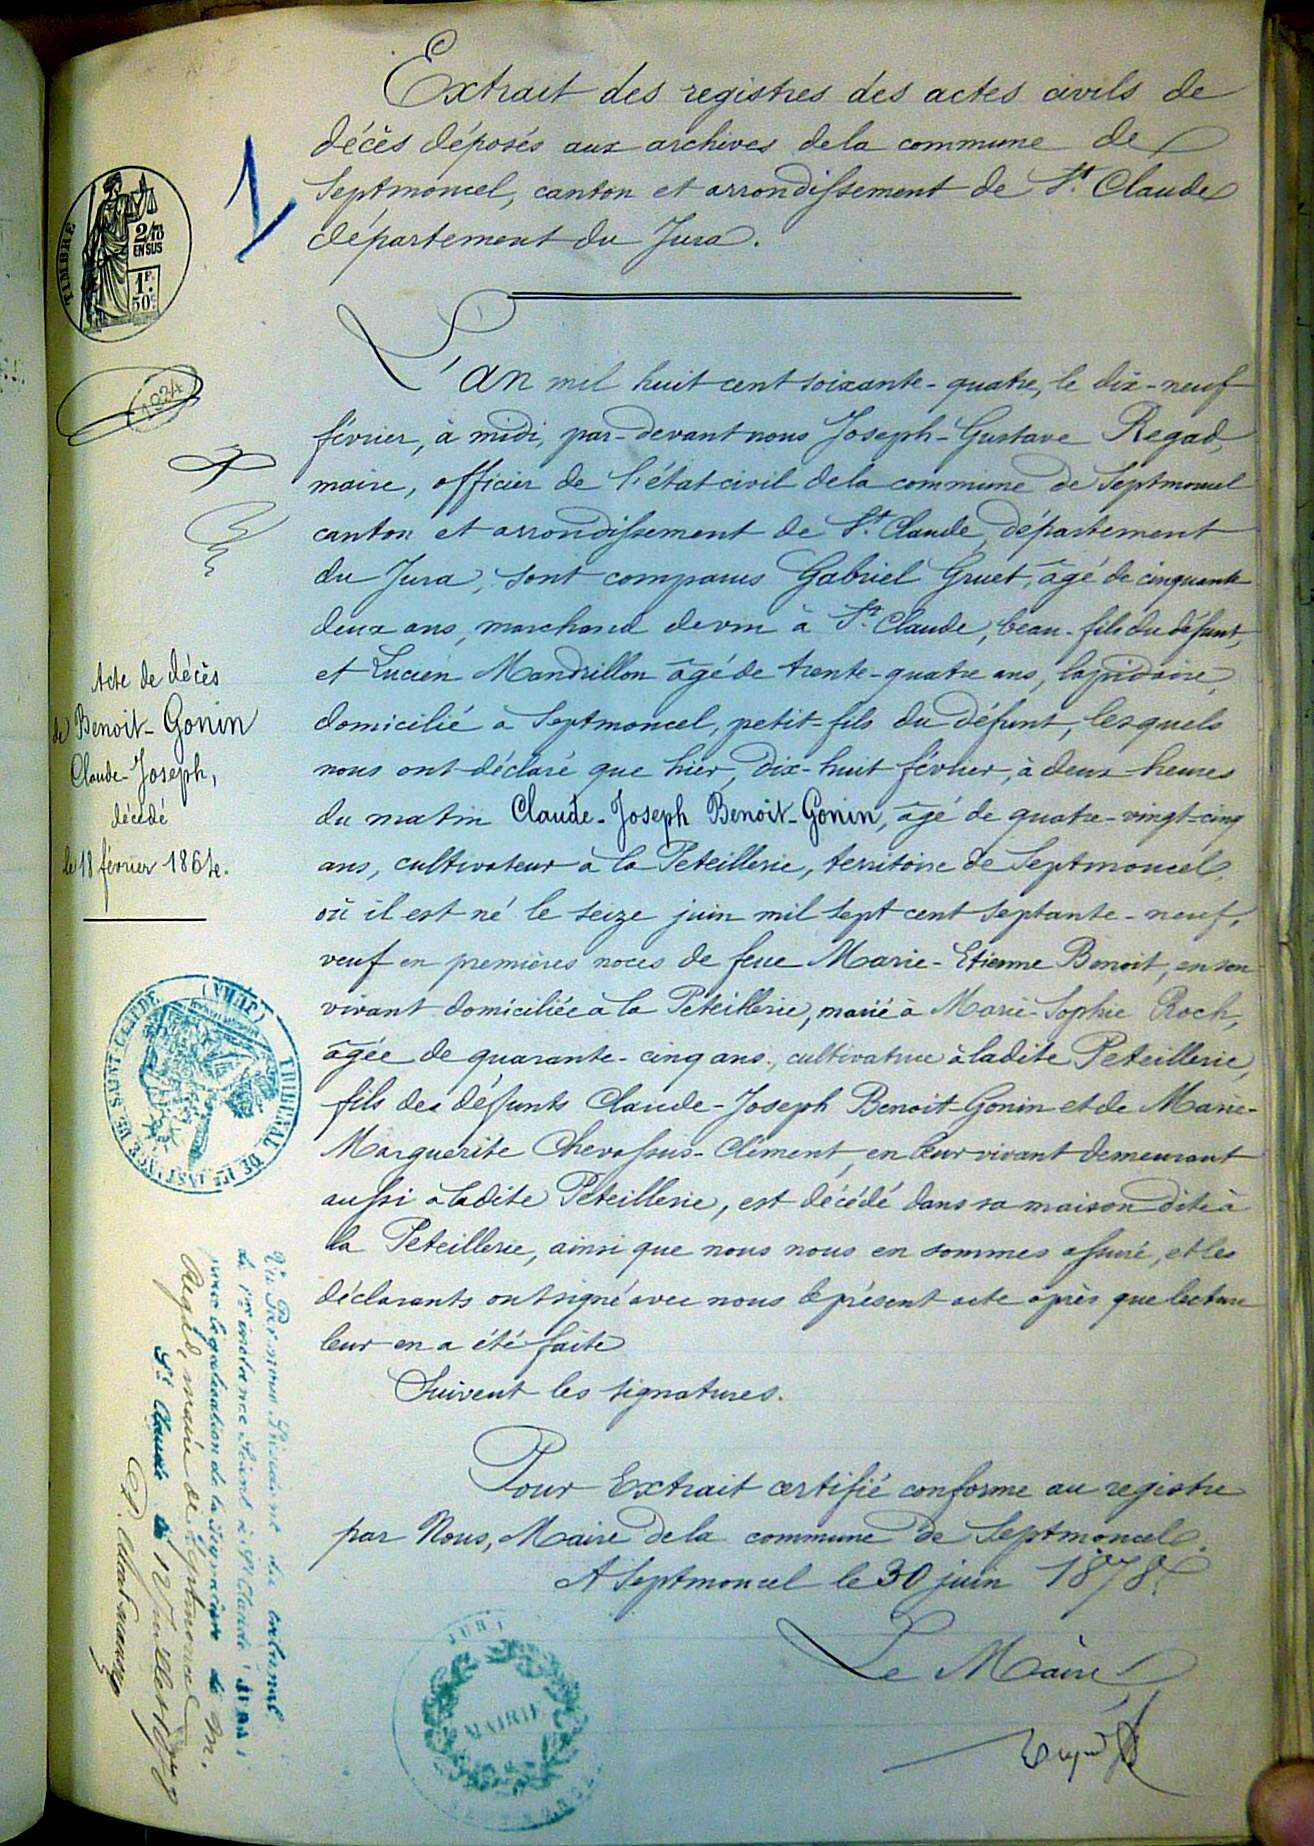 Extrait des registres des actes civils de
décès déposés aux archives de la commune de
Septmoncel, canton et arrondissement de St. Claude
département du Jura.
1
TIMBRE
2/10
EN SUS
1F.
50c
1024
L'an mil huit cent soixante-quatre, le dix-neuf
février, à midi, par-devant nous Joseph-Gustave Regad,
maire, officier de l'état civil de la commune de Septmoncel
canton et arrondissement de St. Claude, département
du Jura, sont comparus Gabriel Gruet, âgé de cinquante
deux ans, marchand de vin à St. Claude, beau-fils du défunt,
et Lucien Mandrillon âgé de trente-quatre ans, lapidaire,
domicilié a Septmoncel, petit-fils du défunt, lesquels
nous ont déclaré que hier, dix-huit février, à deux heures
du matin Claude-Joseph Benoit-Gonin, âgé de quatre-vingt-cinq
ans, cultivateur à la Péteillerie, territoire de Septmoncel,
où il est né le seize juin mil sept cent septante-neuf,
veuf en premières noces de feue Marie-Etienne Benoit, en son
vivant domiciliée à la Péteillerie, marié à Marie-Sophie Roch,
âgée de quarante-cinq ans, cultivatrice à ladite Péteillerie,
fils des défunts Claude-Joseph Benoit-Gonin et de Marie-
Marguerite Chevassus-Clément, en leur vivant demeurant
aussi à ladite Péteillerie, est décédé dans sa maison dite à
la Péteillerie, ainsi que nous nous en sommes assuré, et les
déclarants ont signé avec nous le présent acte après que lecture
leur en a été faite
Suivent les signatures.
Pour Extrait certifié conforme au registre
par Nous, Maire de la commune de Septmoncel.
A Septmoncel le 30 juin 1878.
Le Maire
Acte de décès
de Benoit-Gonin
Claude-Joseph,
décédé
le 18 février 1864.
TRIBUNAL DE 1RE INSTANCE DE SAINT-CLAUDE (JURA)
Vu Par nous Président du tribunal
de 1re instance Séant à St Claude (Jura)
pour légalisation de la Signature de M.
Regad, maire de Septmoncel
St Claude le 12 Juillet 1878
JURA
MAIRIE
SEPTMONCEL